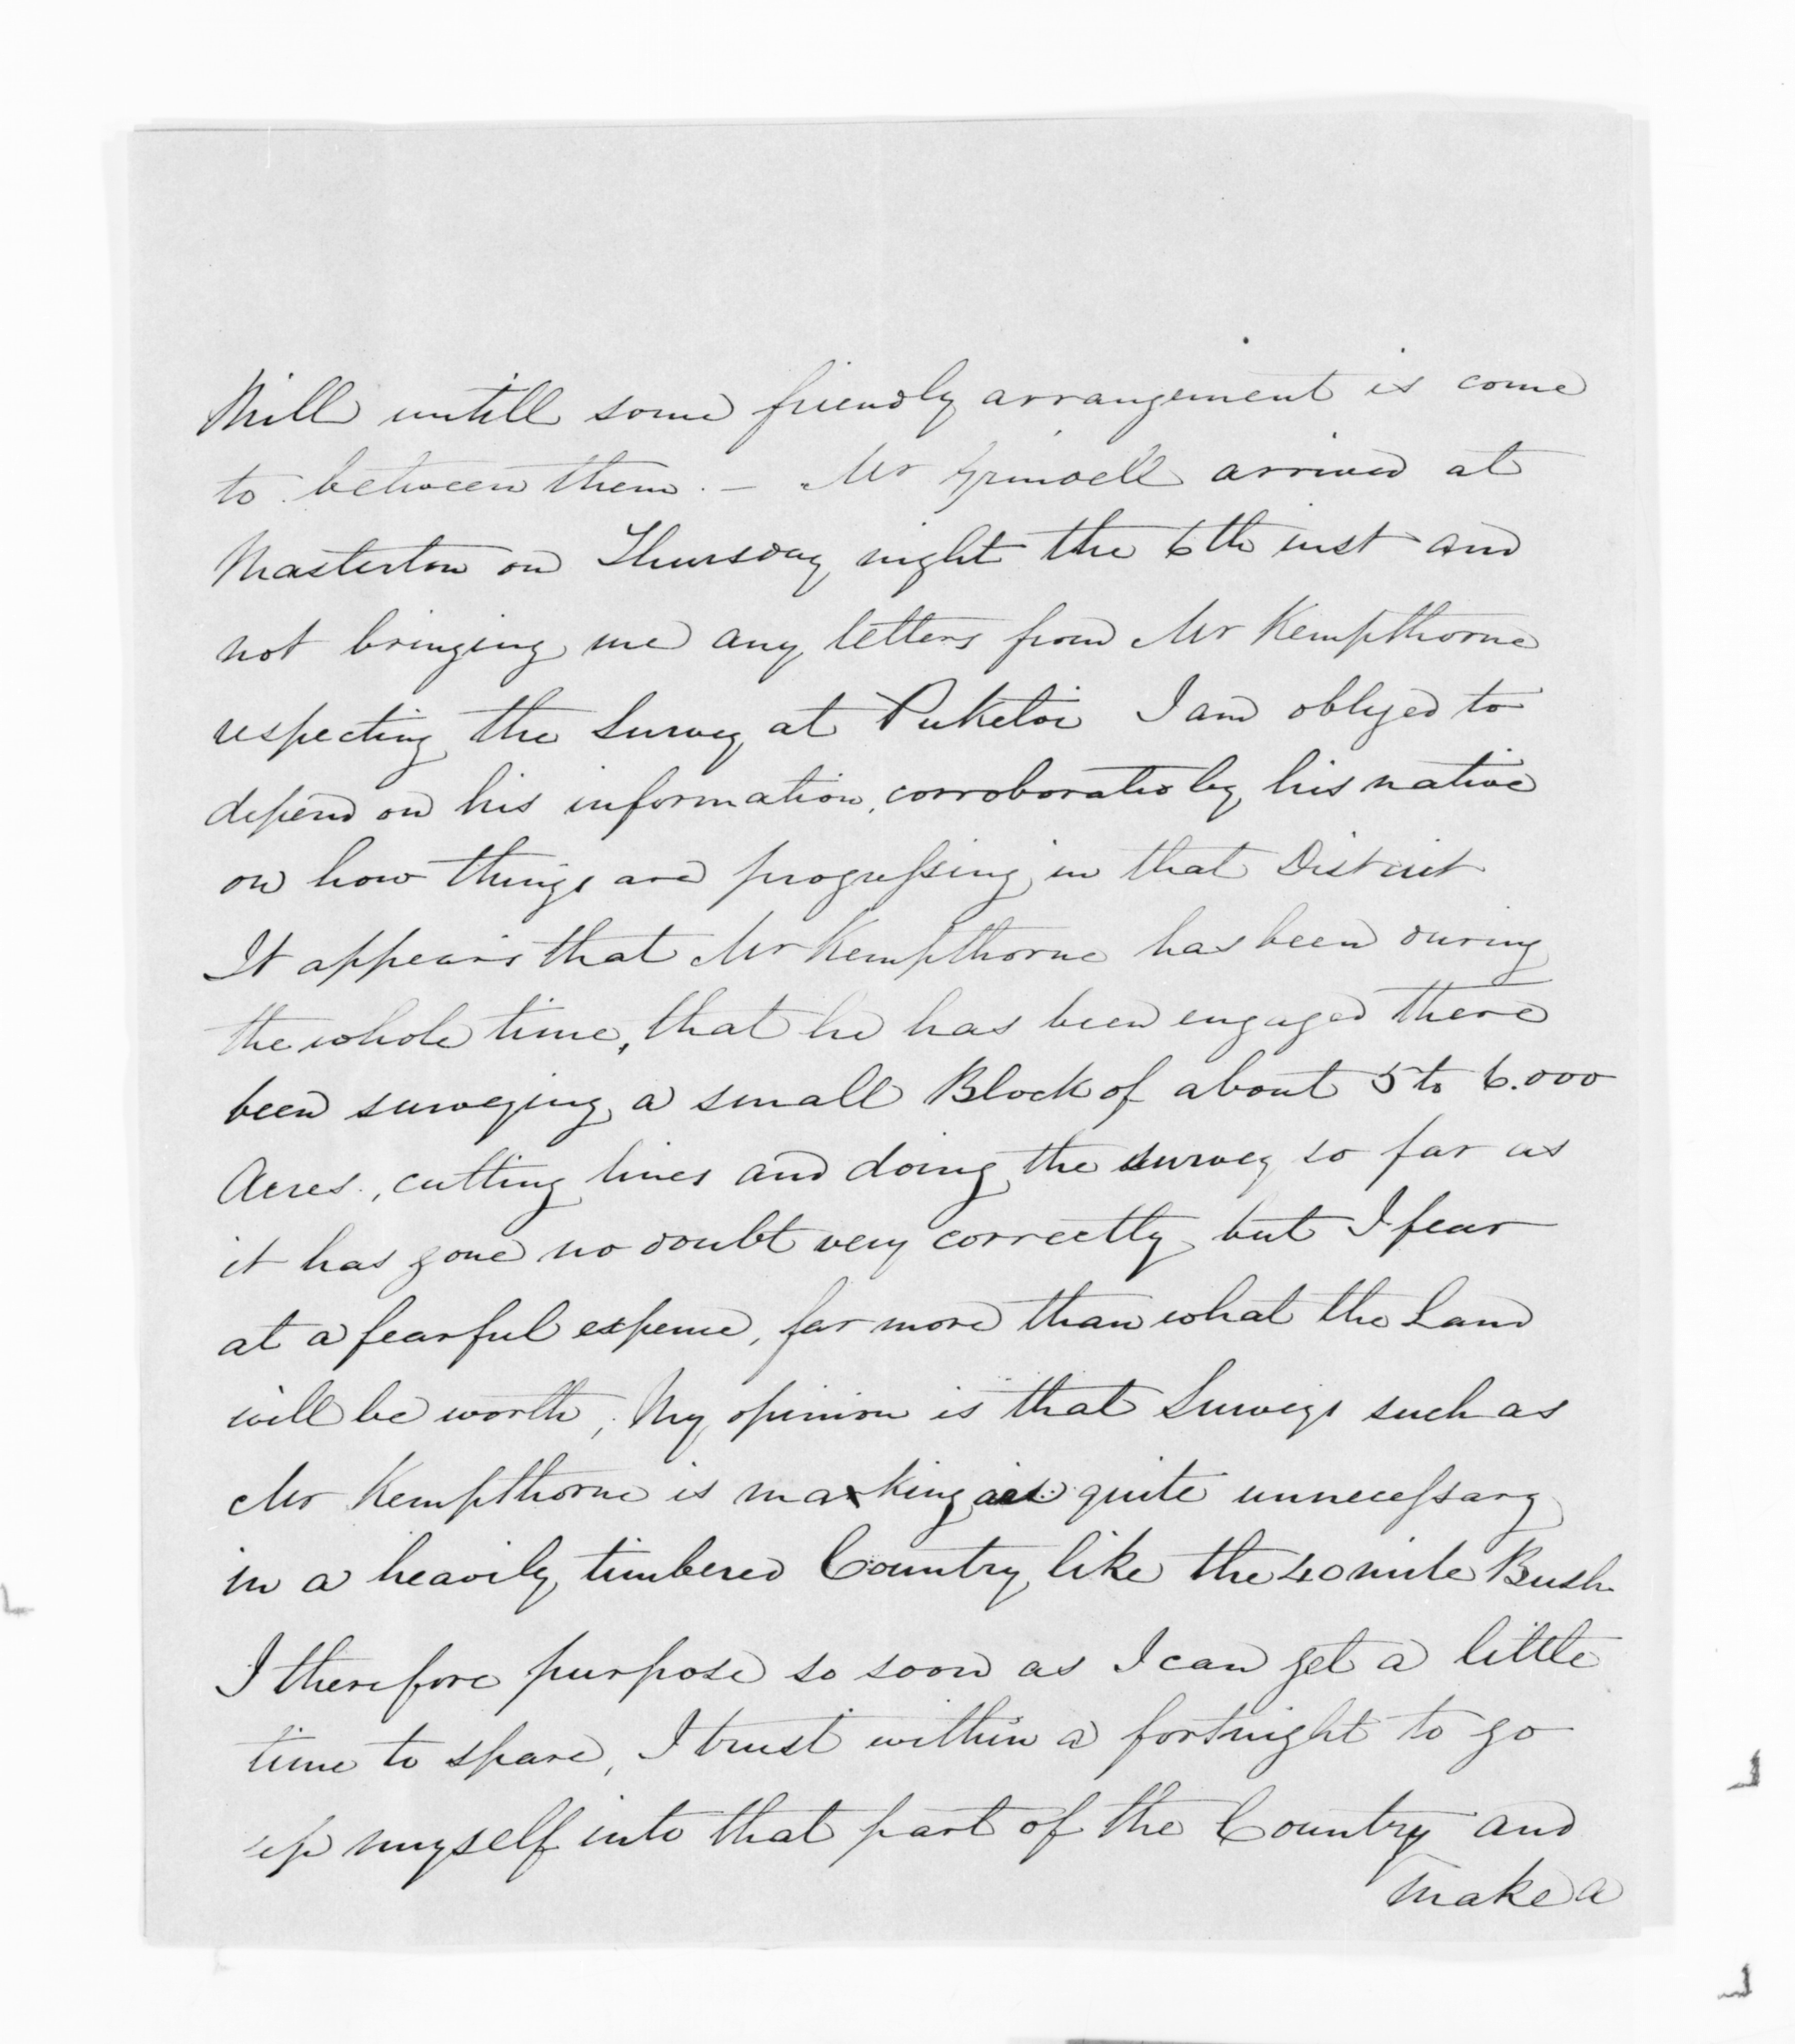 Mill untill some friendly arrangement is come
to between them. — Mr Grindell arrived at
Masterton on Thursday night the 6th inst and
not bringing me any letters from Mr Kempthorne
respecting the Survey at Puketoi I am obliged to
depend on his information, corroborated by his native
on how things are progressing in that District
It appears that Mr Kempthorne has been during
the whole time, that he has been engaged there
been surveying a small Block of about 5 to 6.000
Acres., cutting lines and doing the survey so far as
it has gone no doubt very correctly but I fear
at a fearful expence, far more than what the Land
will be worth, My opinion is that Surveys such as
Mr Kempthorne is making quite unnecessary
in a heavily timbered Country like the 40 mile Bush
I therefore purpose so soon as I can get a little
time to spare, I trust within a fortnight to go
up myself into that part of the Country and
make a